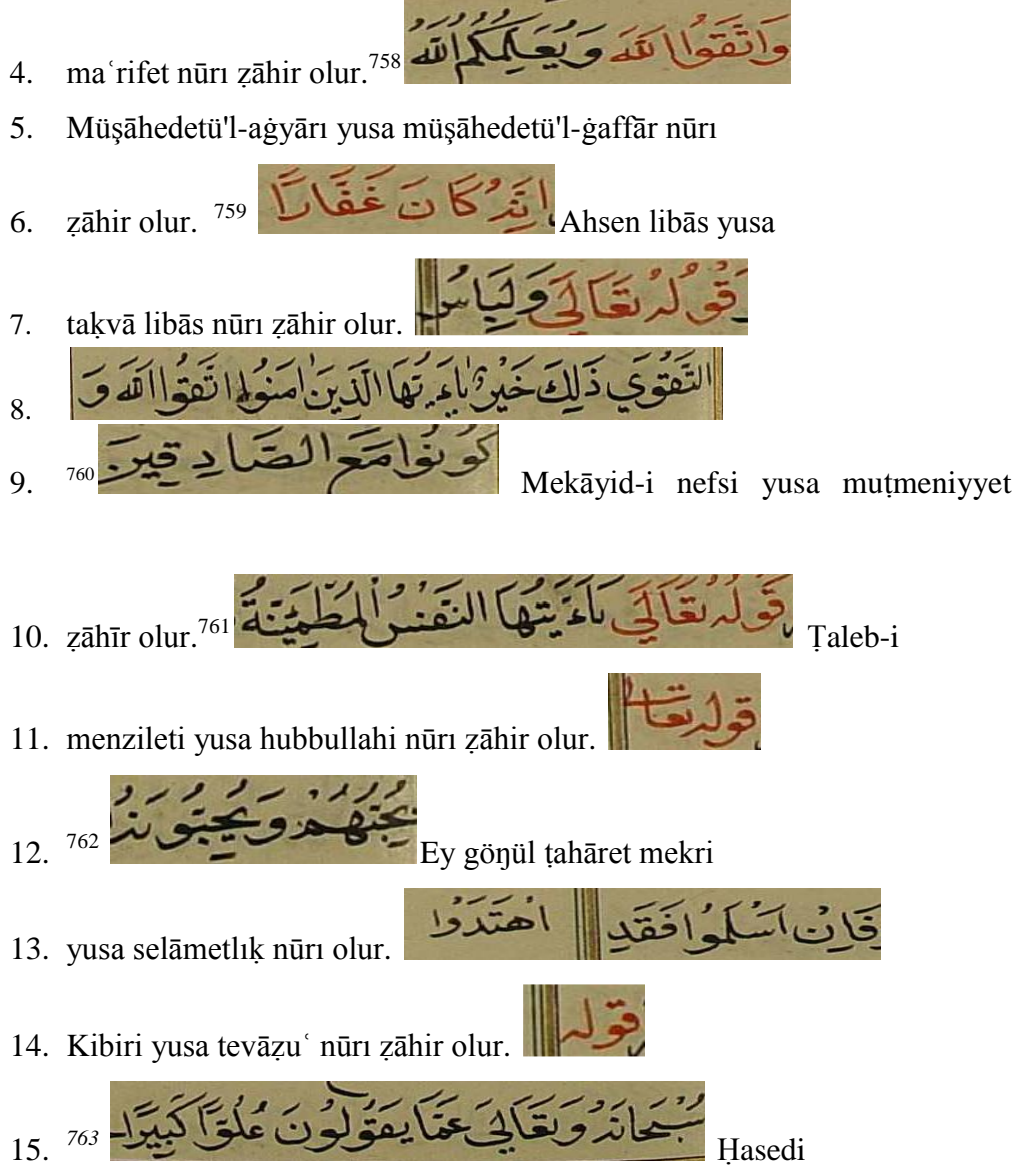 4. maʿrifet nūrı ẓāhir olur.758 وَاتَّقُوا اللّٰهَ وَيُعَلِّمُكُمُ اللّٰهُ
5. Müşāhedetü'l-aġyārı yusa müşāhedetü'l-ġaffār nūrı
6. ẓāhir olur. 759 اِنَّهُ كَانَ غَفَّارًا Ahsen libās yusa
7. taḳvā libās nūrı ẓāhir olur. قَوْلُهُ تَعَالَى وَلِبَاسُ
8. التَّقْوَي ذَلِكَ خَيْرٌ يَاءَيُّهَا الَّذِينَ اٰمَنُوا اتَّقُوا اللّٰهَ وَ
9. 760 كُونُوا مَعَ الصَّادِقِينَ Mekāyid-i nefsi yusa muṭmeniyyet
10. ẓāhīr olur.761 قَوْلُهُ تَعَالَي يَاءَيَّتُهَا النَّفْسُ الْمُطْمَئِنَّةُ Ṭaleb-i
11. menzileti yusa hubbullahi nūrı ẓāhir olur. قوله تعالى
12. 762 يُحِبُّهُمْ وَيُحِبُّونَهُ Ey göŋül ṭahāret mekri
13. yusa selāmetlıḳ nūrı olur. فَاِنْ اَسْلَمُوا فَقَدِ اهْتَدَوْا
14. Kibiri yusa tevāẓuʿ nūrı ẓāhir olur. قوله
15. 763 سُبْحَانَهُ وَتَعَالَىَ عَمَّا يَقُولُونَ عُلُوًّا كَبِيرًا Ḥasedi